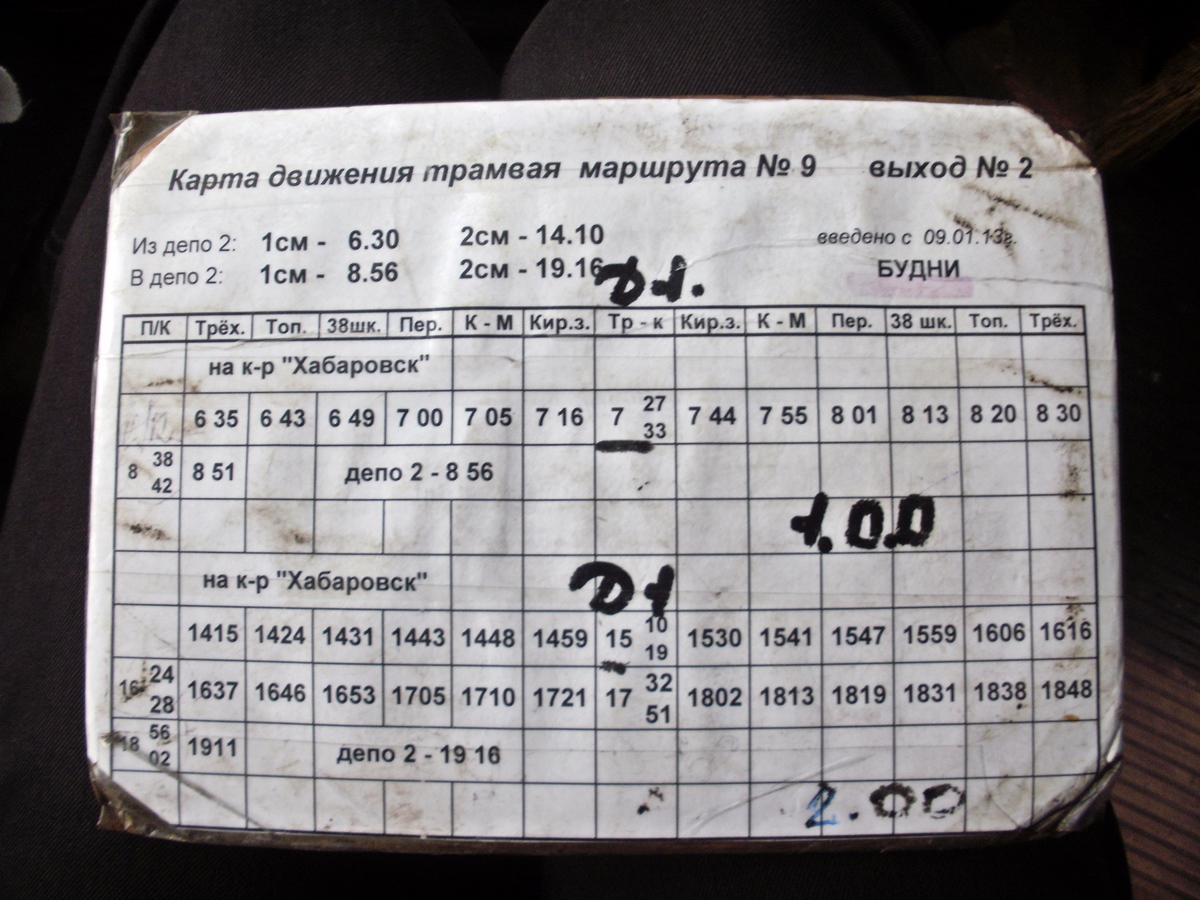 Карта движения трамвая маршрута № 9 выход № 2
Из депо 2: 1см - 6.30 2см - 14.10 введено с 09.01.13г.
В депо 2: 1см - 8.56 2см - 19.16 БУДНИ
Д1.
П/К Трёх. Топ. 38шк. Пер. К - М Кир.з. Тр - к Кир.з. К - М Пер. 38 шк. Топ. Трёх.
на к-р "Хабаровск"
6 35 6 43 6 49 7 00 7 05 7 16 7 27 33 7 44 7 55 8 01 8 13 8 20 8 30
8 38 42 8 51 депо 2 - 8 56
1.00
на к-р "Хабаровск" Д1
1415 1424 1431 1443 1448 1459 15 10 19 1530 1541 1547 1559 1606 1616
16 24 28 1637 1646 1653 1705 1710 1721 17 32 51 1802 1813 1819 1831 1838 1848
18 56 02 1911 депо 2 - 19 16
2.00